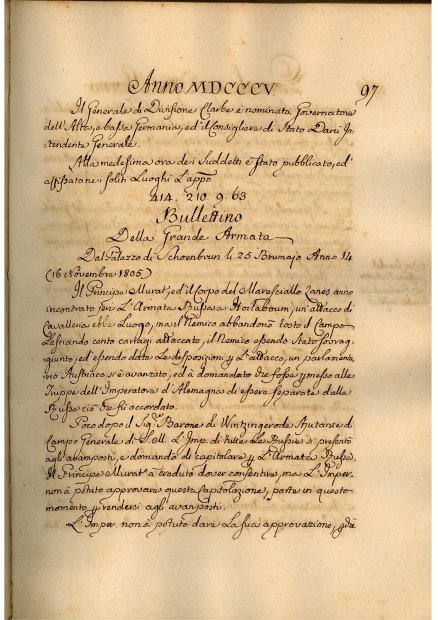 Anno MDCCCV. 97
Il Generale di Divisione Clarke è nominato Governatore
dell'Alta, e bassa Germania, ed il Consigliere di Stato Darù In-
tendente Generale.
Alla medesima ora dei Suddetti è stato pubblicato, ed
affissato ne i soliti Luoghi L'appo
414. 210. 9. 63
Bullettino
Della Grande Armata
Dal Palazzo di Schoenbrun li 25 Brumajo Anno 14
(16 Novembre 1805)
Il Principe Murat, ed il Corpo del Maresciallo Lanes anno
incontrato jeri L'Armata Russa a Hollaboun, un'attacco di
Cavalleria ebbe Luogo, ma il Nemico abbandonò tosto il Campo
Lasciando cento cariaggi attaccato, il Nemico essendo stato sovrag-
giunto, ed essendo date Le disposizioni p L'attacco, un parlamenta-
rio Austriaco si è avanzato, ed à domandato che fosse permesso alle
Truppe dell'Imperatore d'Alemagna di essere separate dalle
Russe ciò che fu accordato.
Poco dopo il Sig. Barone di Wintzingerode Ajutante di
Campo Generale di S. M. L'Imp. di tutte Le Russie si presentò
agl'avamposti, e domandò di capitolare p L'Armata Russa.
Il Principe Murat à creduto dover consentire, ma L'Imper.
non à potuto approvare questa Capitolazione, parte in questo
momento p rendersi agli avamposti.
L'Imper. non à potuto dare La sua approvazione,